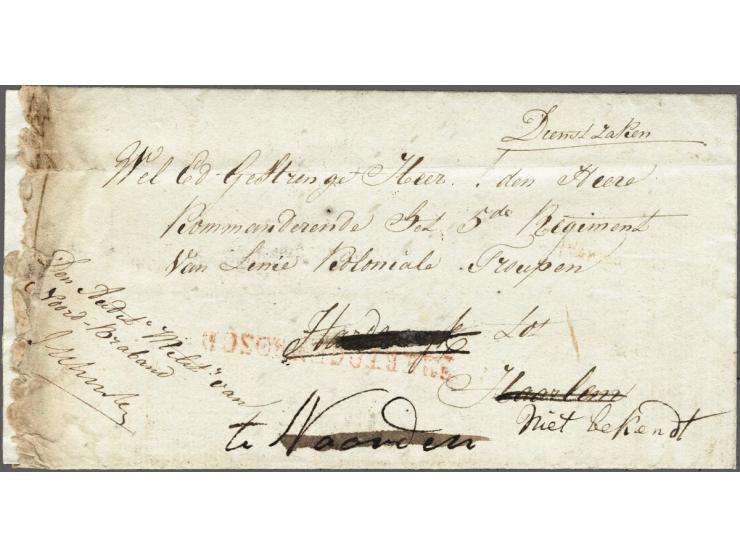 Dienst zaken
Wel Ed. Gestrenge Heer. den Heere
Kommanderende Het 5de Regiment
Van Linie Koloniale Troupen
Harderwyk tot
Haarlem
Niet bekendt
te Naarden
Den Audr Militr van
Noord-Braband
HERTOGENBOSCH